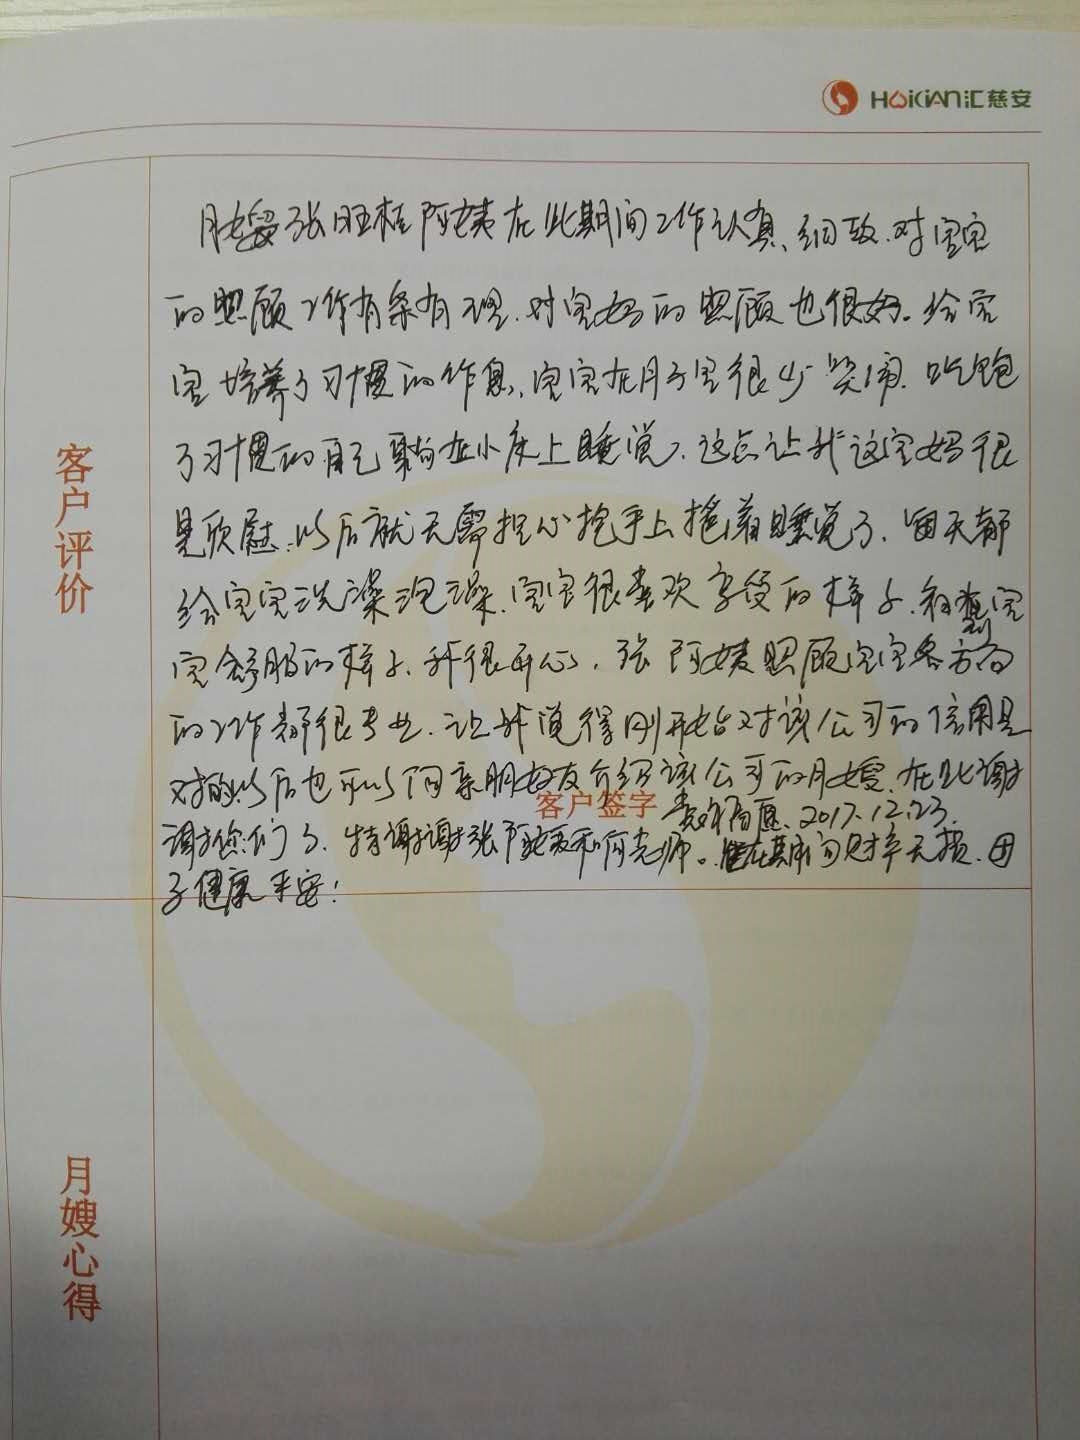 HUIKIAN汇慈安
客户评价
月嫂张旺桂阿姨在此期间工作认真、细致、对宝宝
的照顾工作有条有理、对宝妈的照顾也很好。给宝
宝培养了习惯的作息、宝宝在月子里很少哭闹、吃饱
了习惯的自己躺在小床上睡觉、这点让我这宝妈很
是欣慰、以后就无需担心抱手上摇着睡觉了、每天都
给宝宝洗澡泡澡、宝宝很喜欢享受的样子、看到宝
宝舒服的样子、我很开心、张阿姨照顾宝宝各方面
的工作都很专业、让我觉得刚开始对该公司的信用是
对的以后也可以向亲朋好友介绍该公司的月嫂、在此谢
客户签字
2017.12.23.
谢谢您们了、特谢谢张阿姨和何老师。在期间无损、母
子健康平安!
月嫂心得